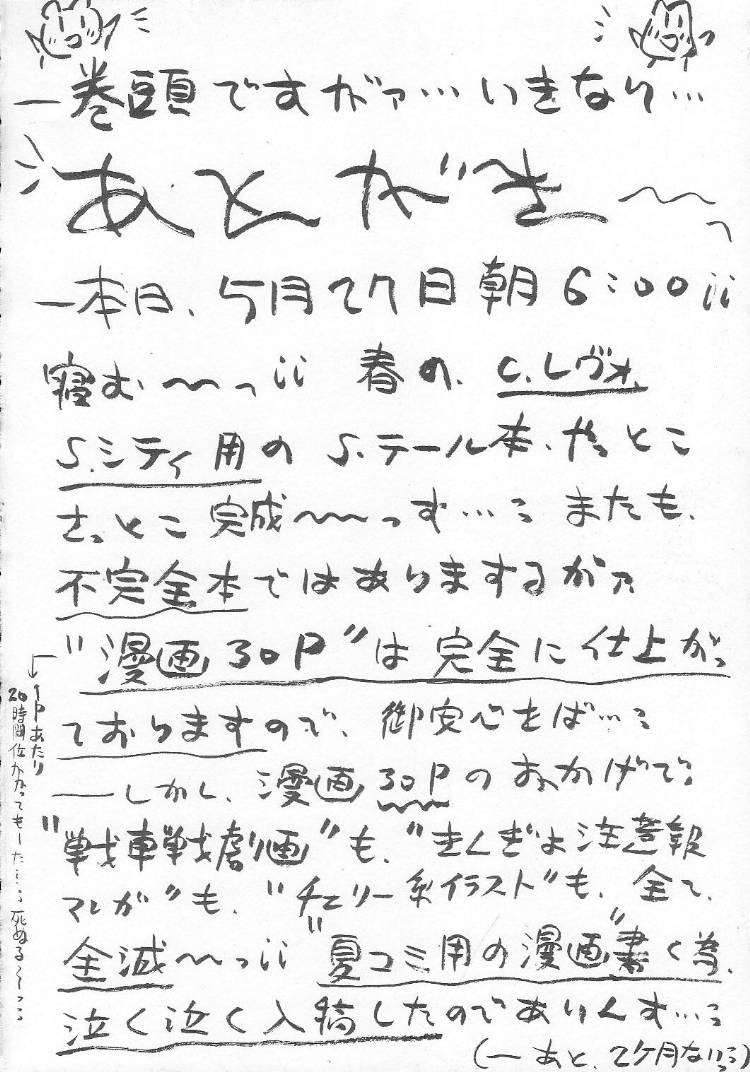 —巻頭ですがァ…いきなり…
あとがき〜〜っ
—本日、5月27日朝6:00¡¡
寝む〜〜っ¡¡ 春の、C.レヴォ、
S.シティ用のS.テール本、やっとこ
さっとこ完成〜〜〜っす…:: またも、
不完全本ではありまするがァ
"漫画30P"は完全に仕上がっ
ておりますので、御安心をば…::
——しかし、漫画30Pのおかげで::
"戦車戦劇画"も、"きんぎょ注意報
マンガ"も、"チェリー系イラスト"も、全て、
全滅〜〜っ¡¡ "夏コミ用の漫画"書く為、
泣く泣く入稿したのでありんす…::
(—あと、2ケ月ないっ::)
1Pあたり
20時間位かかってもーた…:: 死ぬる〜っ::